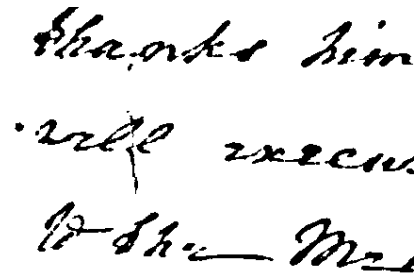 thanks him
will excus
to the M